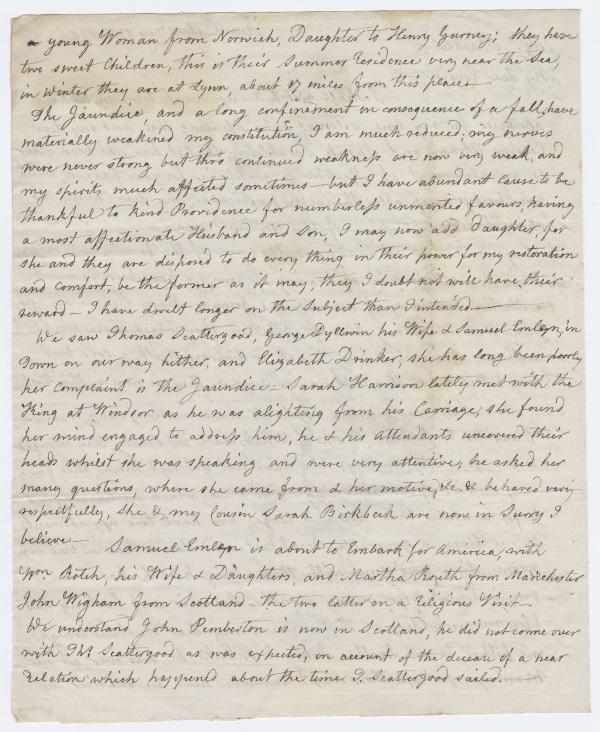 a young Woman from Norwich, Daughter to Henry Gurney; they have
two sweet Children, this is their Summer Residence very near the Sea,
in winter they are at Lynn, about 17 miles from this place.
The Jaundice, and a long confinement in consequence of a fall, have
materially weakened my constitution, I am much reduced; my nerves
were never strong but thro continued weakness are now very weak, and
my spirits much affected sometimes — but I have abundant cause to be
thankful to kind Providence for numberless unmerited favours, having
a most affectionate Husband and Son, I may now add Daughter, for
she and they are disposed to do every thing in their power for my restoration
and comfort, be the former as it may, they I doubt not will have their
reward — I have dwelt longer on the Subject than I intended —
We saw Thomas Scattergood, George Dyllwin his Wife & Samuel Emlen, in
Town on our way hither, and Elizabeth Drinker, she has long been poorly
her complaint is the Jaundice — Sarah Harrison lately met with the
King at Windsor as he was alighting from his Carriage, she found
her mind engaged to address him, he & his Attendants uncovered their
heads whilst she was speaking and were very attentive, he asked her
many questions, where she came from & her motive, &c. & behaved very
respectfully, She & my Cousin Sarah Birkbeck are now in Surry I
believe —
Samuel Emlen is about to Embark for America, with
Wm. Rotch, his Wife & Daughters, and Martha Routh from Manchester
John Wigham from Scotland — the two latter on a Religious Visit —
We understand John Pemberton is now in Scotland, he did not come over
with Thos. Scattergood as was expected, on account of the decease of a near
relation which happened about the time T. Scattergood sailed.